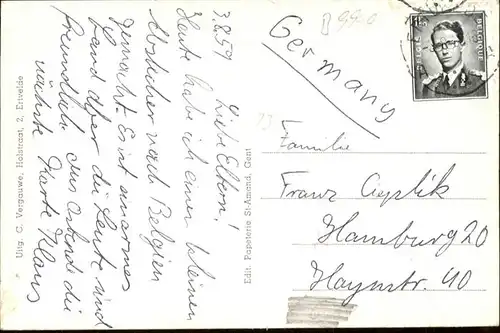 3.8.59
Liebe Eltern!
Heute habe ich einen kleinen
Abstecher nach Belgien
gemacht. Es ist ein armes
Land aber die Leute sind
freundlich. Aus Ostende die
nächste Karte Klaus
Uitg. C. Vergauwe, Holstraat, 2, Ertvelde
Edit. Papeterie St-Amand, Gent
Germany
BELGIE BELGIQUE
Familie
Franz
Hamburg 20
Haynstr. 40